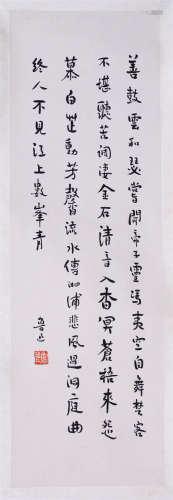 善鼓雲和瑟嘗聞帝子靈馮夷空自舞楚客
不堪聽苦調淒金石清音入杳冥蒼梧來怨
慕白芷動芳馨流水傳湘浦悲風過洞庭曲
終人不見江上數峯青
魯迅